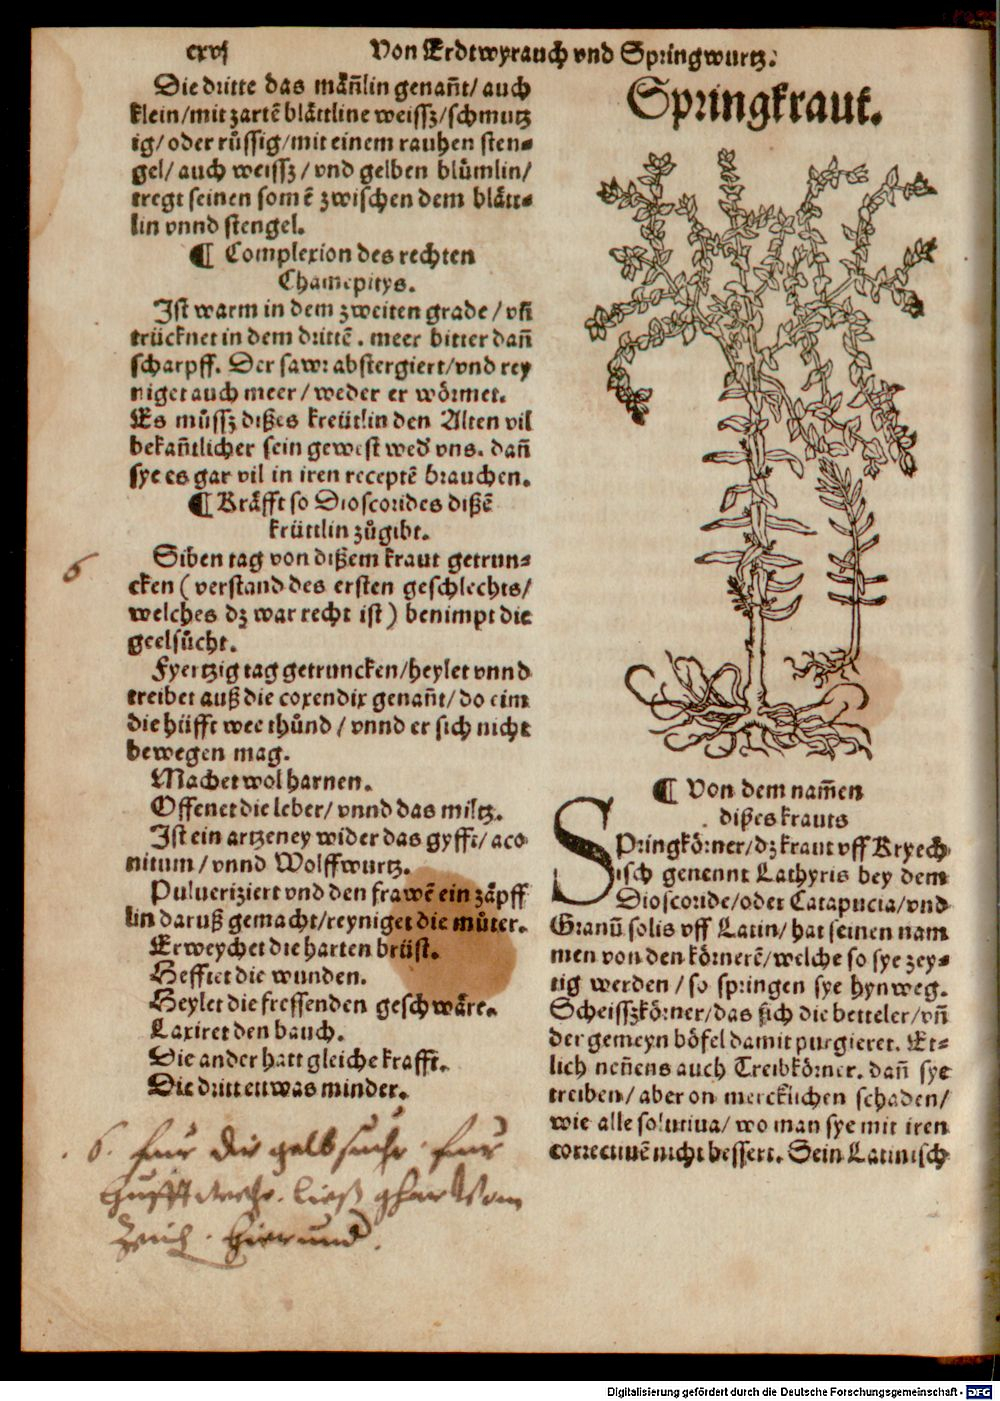 cxvj
Von Erdtwyrauch vnd Springwurtz.
Die dritte das mān̄lin genan̄t/ auch
klein/mit zartē blättline weissz/schmutz
ig/oder růssig/mit einem rauhen sten⸗
gel/ auch weissz/ vnd gelben blůmlin/
tregt seinen somē zwischen dem blätt⸗
lin vnnd stengel.
¶ Complexion des rechten
Chamepitys.
Ist warm in dem zweiten grade/ vn̄
trücknet in dem drittē. meer bitter dan̄
scharpff. Der sawr abstergiert/vnd rey
niget auch meer/ weder er wörmet.
Es můssz dißes kreütlin den Alten vil
bekan̄tlicher sein gewest wed̕ vns. dan̄
sye es gar vil in iren receptē brauchen.
¶ Kräfft so Dioscorides dißē
krüttlin zůgibt.
Siben tag von dißem kraut getrun⸗
cken (verstand des ersten geschlechts/
welches dz war recht ist) benimpt die
geelsücht.
Fyertzig tag getruncken/heylet vnnd
treibet auß die coxendix genan̄t/ do eim
die hüfft wee thůnd/ vnnd er sich nicht
bewegen mag.
Machet wol harnen.
Offenet die leber/ vnnd das miltz.
Ist ein artzeney wider das gyfft/ aco
nitum/ vnnd Wolffwurtz.
Pulueriziert vnd den frawē ein zäpff
lin daruß gemacht/reyniget die můter.
Erweychet die harten brüst.
Hefftet die wunden.
Heylet die fressenden geschwäre.
Laxiret den bauch.
Die ander hatt gleiche krafft.
Die dritt etwas minder.
6
6. fur die gelbsucht. fur
Springkraut.
¶ Von dem nam̄en
dißes krauts
Springkörner/dz kraut vff Kryech
isch genennt Lathyris bey dem
Dioscoride/oder Catapucia/vnd
Granū solis vff Latin/ hat seinen nam
men von den körnerē/welche so sye zey⸗
tig werden/ so springen sye hynweg.
Scheisszkörner/das sich die betteler/vn̄
der gemeyn böfel damit purgieret. Et⸗
lich nen̄ens auch Treibkörner. dan̄ sye
treiben/ aber on mercklichen schaden/
wie alle solutiua/ wo man sye mit iren
correctiuē nicht bessert. Sein Latinisch
Digitalisierung gefördert durch die Deutsche Forschungsgemeinschaft - DFG